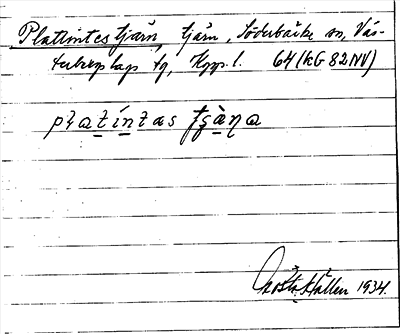 Plattintestjärn, tjärn, Söderbärke sn, Väs-
terbergslags tg, Kppl. 64 (KG 82 NV)
platintas
Gösta Hallen 1934.